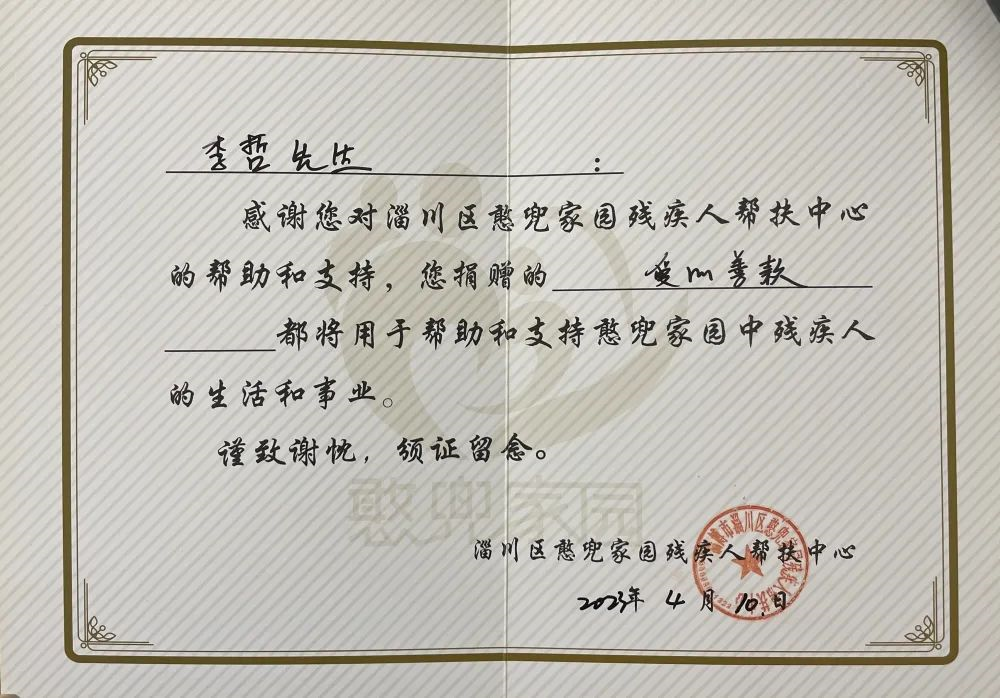 李哲先生：
感谢您对淄川区憨兜家园残疾人帮扶中心
的帮助和支持，您捐赠的爱心善款
都将用于帮助和支持憨兜家园中残疾人
的生活和事业。
谨致谢忱，颁证留念。
憨兜家园
淄川区憨兜家园残疾人帮扶中心
2023年4月10日
淄博市淄川区憨兜家园残疾人帮扶中心